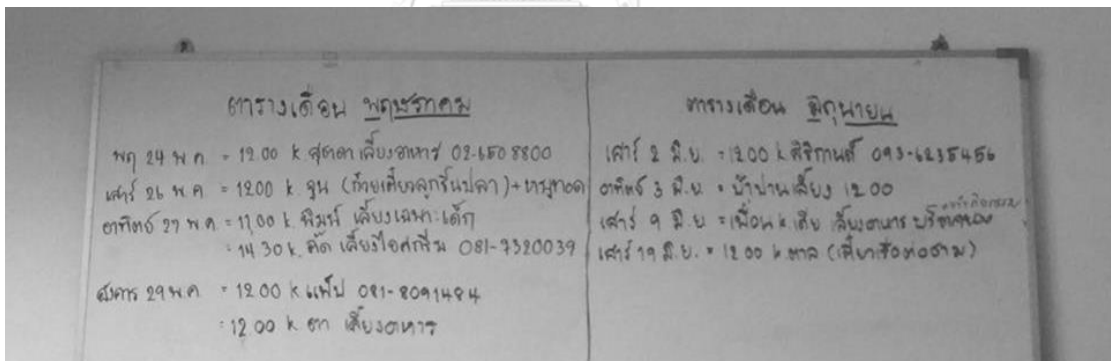 ตารางเดือน พฤษภาคม
พฤ 24 พ.ค. = 12.00 k สุดตา เลี้ยงอาหาร 02-650 8800
เสาร์ 26 พ.ค = 12.00 k จูน (ก๋วยเตี๋ยวลูกชิ้นปลา)+หมูทอด
อาทิตย์ 27 พ.ค = 11.00 k. พิมพ์ เลี้ยงเฉพาะเด็ก
= 14.30 k. เลี้ยงไอศกรีม 081-7320039
อังคาร 29 พ.ค. = 12.00 k แพ็ป 081-8091484
= 12.00 k ตา เลี้ยงอาหาร
ตารางเดือน มิถุนายน
เสาร์ 2 มิ.ย. = 12.00 k สิริกานต์ 093-6235456
อาทิตย์ 3 มิ.ย. = ป้าปานเลี้ยง 12.00
เสาร์ 9 มิ.ย = เพื่อน k เลี้ยงอาหาร บริจาคของ
เสาร์ 19 มิ.ย. = 12.00 k.ตาล